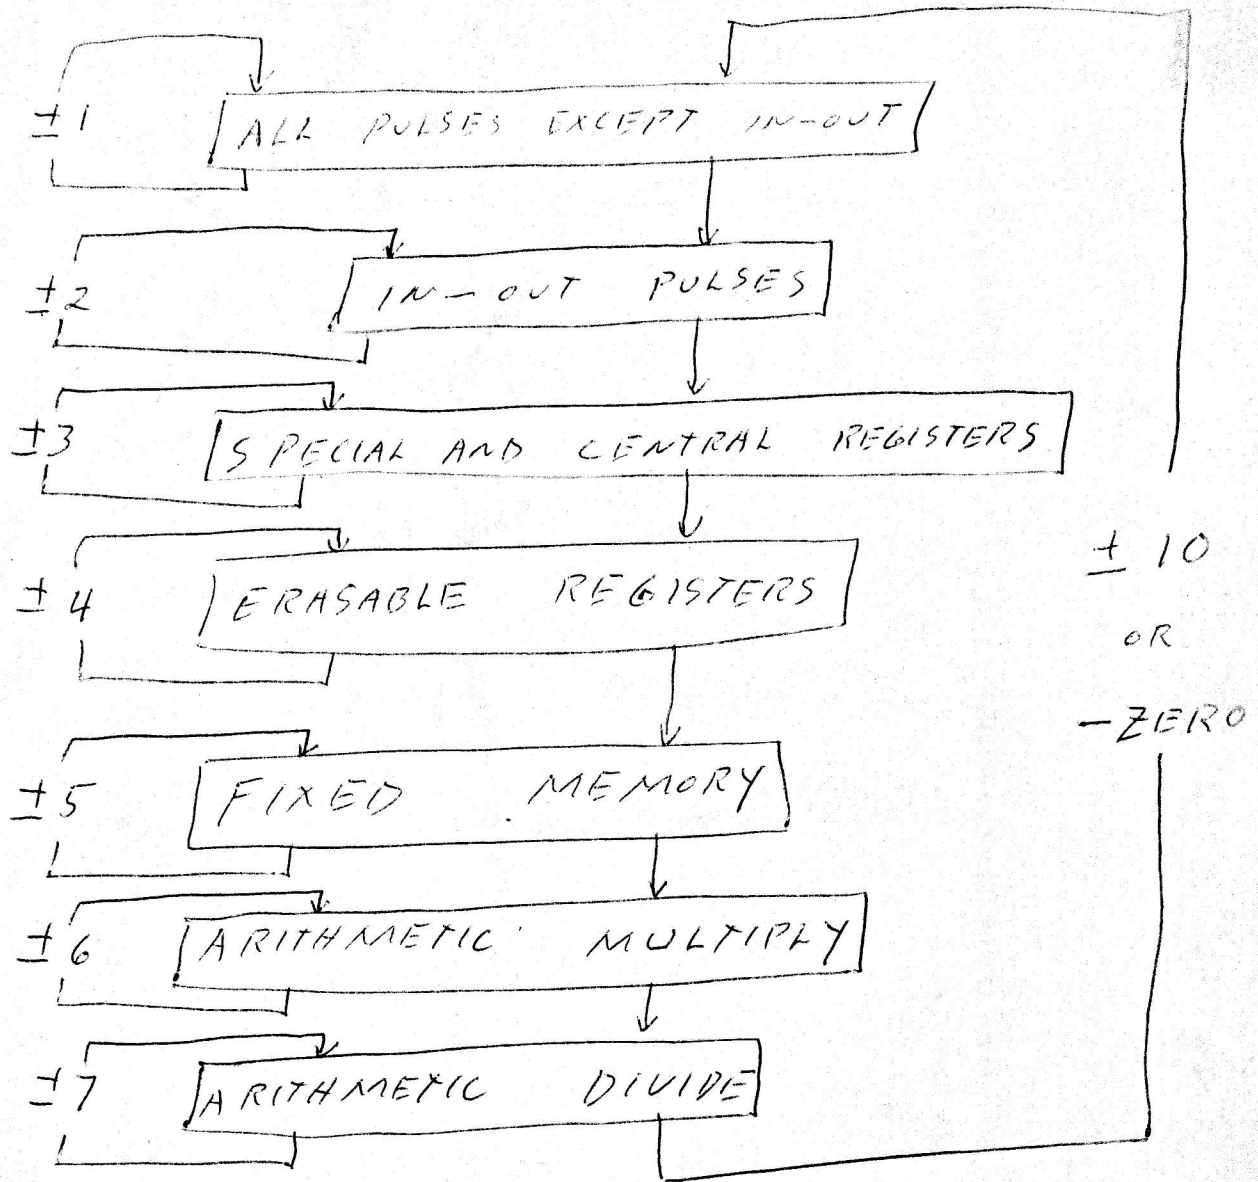 ±1
ALL PULSES EXCEPT IN-OUT
±2
IN-OUT PULSES
±3
SPECIAL AND CENTRAL REGISTERS
±4
ERASABLE REGISTERS
± 10
OR
-ZERO
±5
FIXED MEMORY
±6
ARITHMETIC MULTIPLY
±7
ARITHMETIC DIVIDE